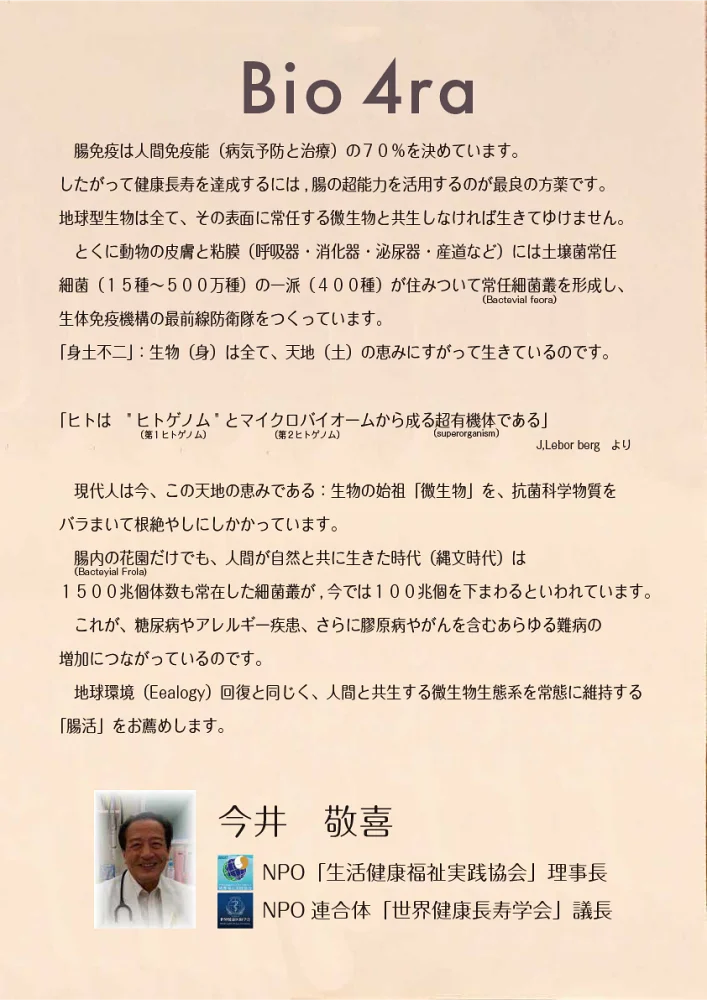 Bio 4ra
腸免疫は人間免疫能（病気予防と治療）の７０％を決めています。
したがって健康長寿を達成するには，腸の超能力を活用するのが最良の方薬です。
地球型生物は全て、その表面に常任する微生物と共生しなければ生きてゆけません。
とくに動物の皮膚と粘膜（呼吸器・消化器・泌尿器・産道など）には土壌菌常任
細菌（１５種〜５００万種）の一派（４００種）が住みついて常任細菌叢を形成し、
(Bactevial feora)
生体免疫機構の最前線防衛隊をつくっています。
「身土不二」：生物（身）は全て、天地（土）の恵みにすがって生きているのです。
「ヒトは "ヒトゲノム" とマイクロバイオームから成る超有機体である」
(第１ヒトゲノム) (第２ヒトゲノム) (superorganism)
J,Lebor berg より
現代人は今、この天地の恵みである：生物の始祖「微生物」を、抗菌科学物質を
バラまいて根絶やしにしかかっています。
腸内の花園だけでも、人間が自然と共に生きた時代（縄文時代）は
(Bacteyial Frola)
１５００兆個体数も常在した細菌叢が，今では１００兆個を下まわるといわれています。
これが、糖尿病やアレルギー疾患、さらに膠原病やがんを含むあらゆる難病の
増加につながっているのです。
地球環境（Eealogy）回復と同じく、人間と共生する微生物生態系を常態に維持する
「腸活」をお薦めします。
今井 敬喜
NPO「生活健康福祉実践協会」理事長
NPO 連合体「世界健康長寿学会」議長